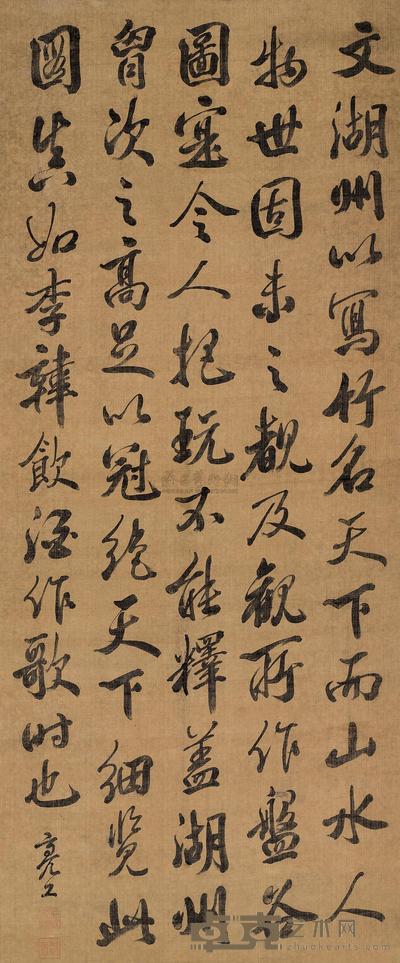 文湖州以寫竹名天下而山水人
物世固未之覩及觀所作盤谷
圖寔令人把玩不能釋蓋湖州
胷次之高足以冠絶天下細覽此
圖真如李韓飲酒作歌時也
亮工
卓克艺术网